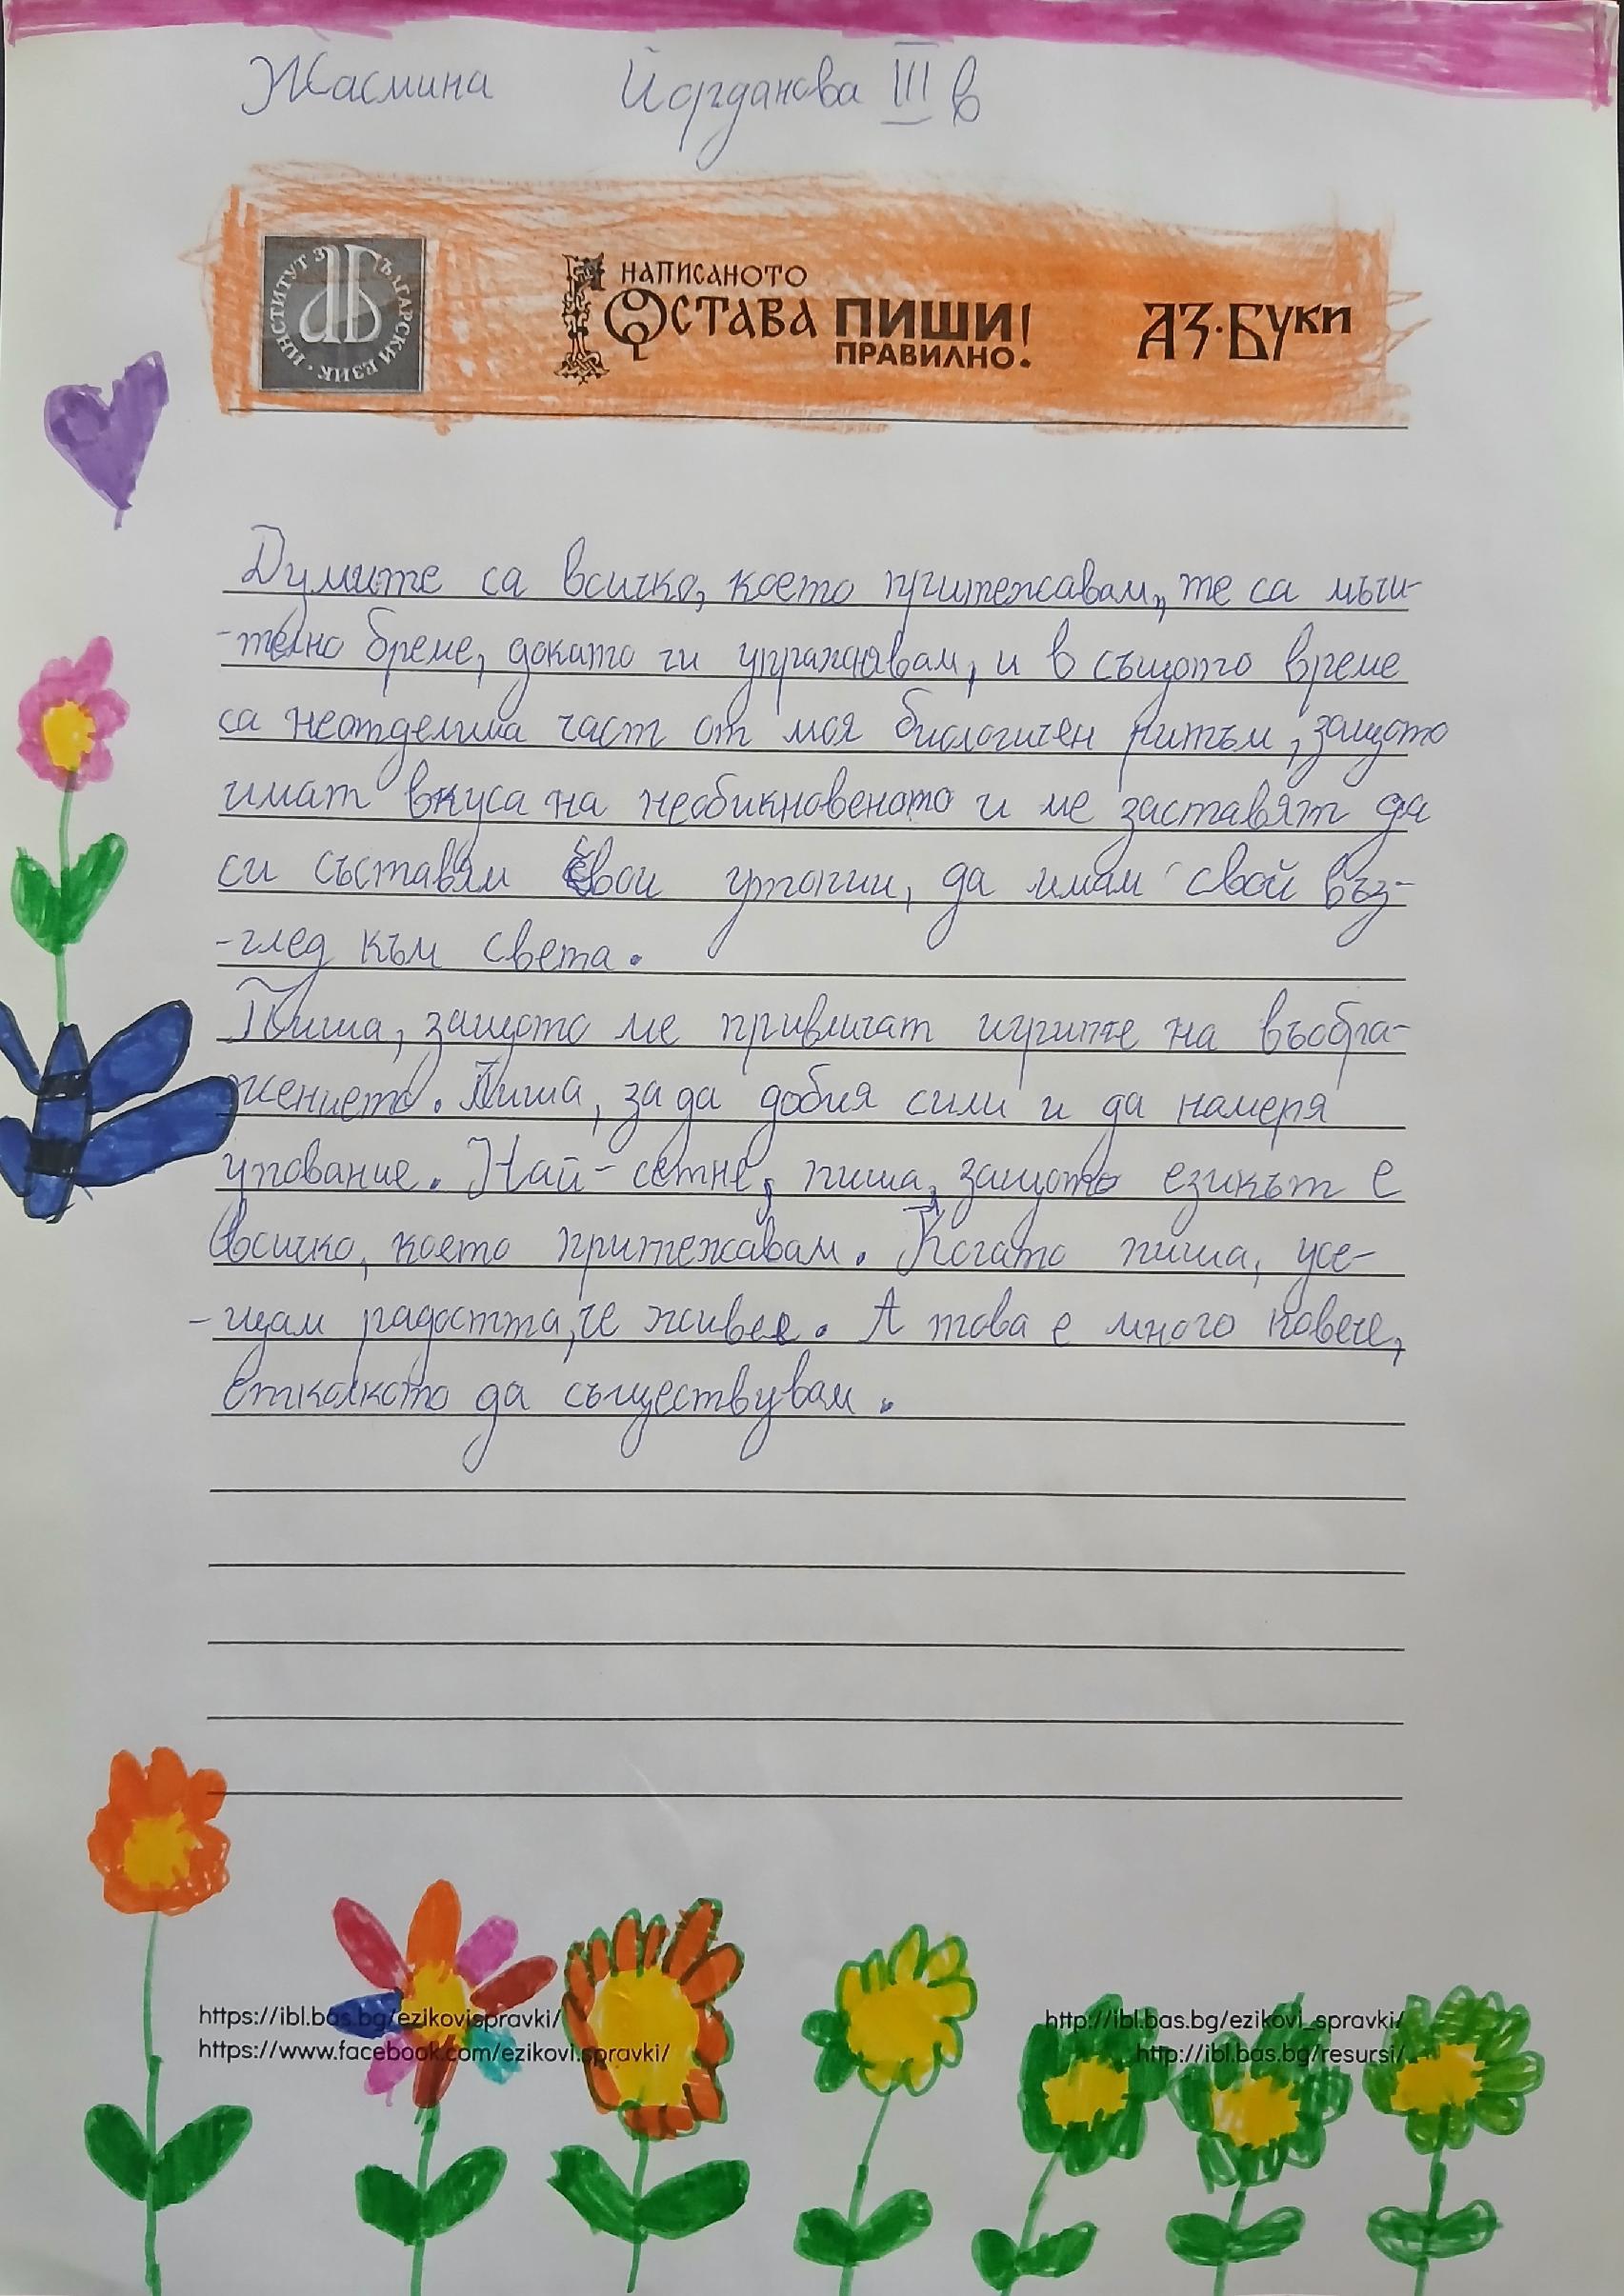 Жасмина Йорданова III в
ИНСТИТУТ ЗА БЪЛГАРСКИ ЕЗИК
НАПИСАНОТО
ОСТАВА ПИШИ!
ПРАВИЛНО.
АЗ·БУКИ
Думите са всичко, което притежавам, те са мъчи-
-телно бреме, докато ги упражнявам, и в същото време
са неотделима част от моя биологичен ритъм, защото
имат вкуса на необикновеното и ме заставят да
си съставям свои утопии, да имам свой въз-
-глед към света.
Пиша, защото ме привличат игрите на въобра-
жението. Пиша, за да добия сили и да намеря
упование. Най-сетне, пиша, защото езикът е
всичко, което притежавам. Когато пиша, усе-
-щам радостта, че живея. А това е много повече,
отколкото да съществувам.
https://ibl.bas.bg/ezikovispravki/
https://www.facebook.com/ezikovi.spravki/
http://ibl.bas.bg/ezikovi_spravki/
http://ibl.bas.bg/resursi/